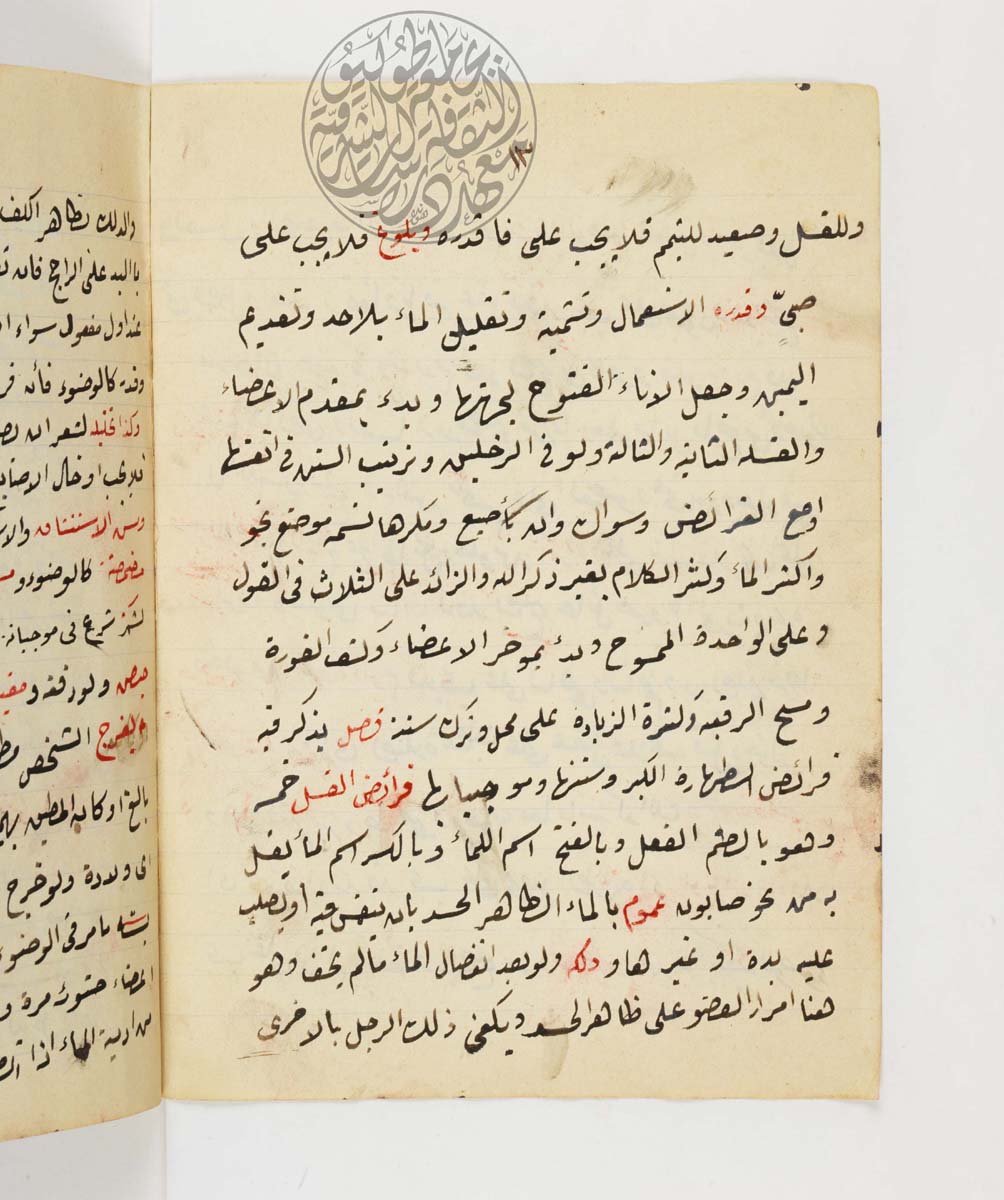 وللغسل وصعيد للتيمم فلا يجب على فاقده وبلوغ فلا يجب على
صبيّ وقدره الاستعمال وتسمية وتقليل الماء بلا حد وتقديم
اليمين وجعل الاناء المفتوح لجهتها وبدء بمقدم الاعضاء
والغسله الثانية والثالثة ولو فى الرجلين وترتيب السنن فى انفسها
او مع الفرائض وسواك وان بأصبع ومكرهاته موضع نجو
واكثر الماء وكثر الكلام بغير ذكر الله والزائد على الثلاث فى المغسول
وعلى الواحدة الممسوح وبدئ بموخر الاعضاء وكشف العورة
ومسح الرقبه وكثرة الزيادة على محل وترك سنة فصل يذكر فيه
فرائض الطهارة الكبر وسننها وموجباتها فرائض الغسل خمسه
وهو بالضم الفعل وبالفتح اسم للماء وبالكسر اسم لما يغسل
به من نحو صابون عموم بالماء الظاهر الجسد بان ينغمس فيه أو يصلب
عليه بده او غيرها ودلك ولو بعد انفصال الماء مالم يجف وهو
هنا امرار العضو على ظاهر الجسد ويكفى ذلك الرجل بالاخرى
والدلك بظاهر الكف
بااليد على الراجح فان
عند اول مفعول سواء
وقدم كالوضوء فأنه
وكذا تخليله لشعر
فلا يجب ادخال
وسن الاستنشاق
مضمضة كالوضوء
شرع فى موجباته
حيض ولو دفقه
الفرج الشخص
بالغا او كان المطيق
اى ولادة ولو خرج
ما مر فى الوضوء
مرة
الماء اذا
جامعة طوكيو
معهد الدراسات الشرقية